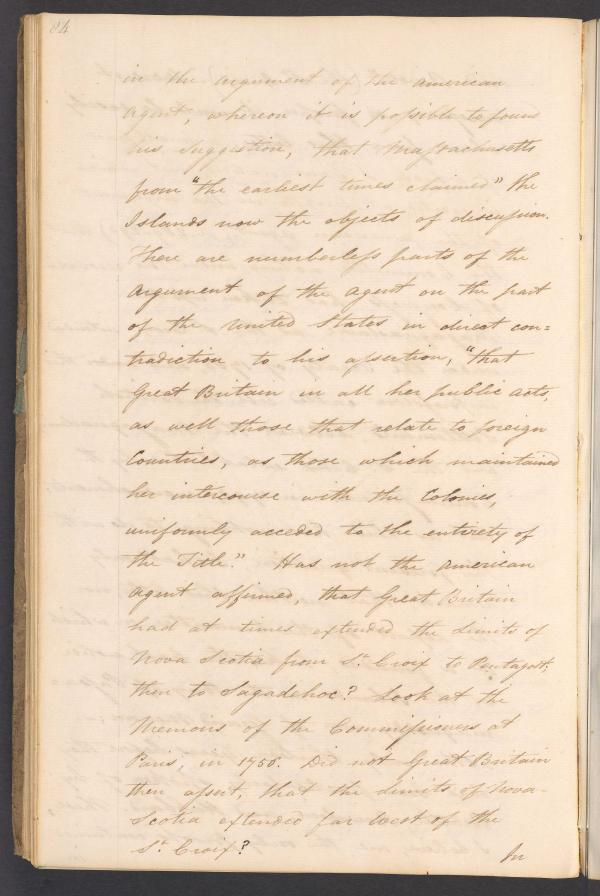 84
in the argument of the american
agent, whereon it is possible to found
his suggestion, that Massachusetts
from "the earliest times claimed" the
Islands now the objects of discussion.
There are numberless parts of the
argument of the agent on the part
of the United States in direct con=
tradiction to his assertion, "that
Great Britain in all her public acts,
as well those that relate to foreign
Countries, as those which maintained
her intercourse with the Colonies,
uniformly acceded to the entirety of
the Title." Has not the american
agent affirmed, that Great Britain
had at times extended the Limits of
Nova Scotia from St. Croix to Pentagoet;
then to Sagadehoc? Look at the
Memoirs of the Commissioners at
Paris, in 1750. Did not Great Britain
then assert, that the Limits of Nova-
Scotia extended far West of the
St. Croix?
In